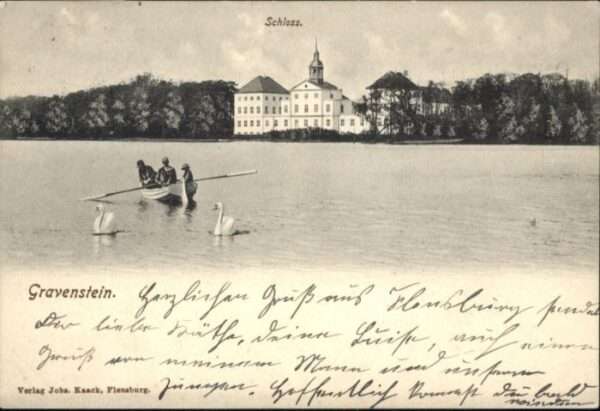 Schloss.
Gravenstein.
Herzlichen Gruß aus Flensburg sendet
Dir liebe Käthe, deine Luise, auch einen
Gruß von meinem Mann und unserm
Jungen. Hoffentlich kommst du bald
Verlag Johs. Kaack, Flensburg.